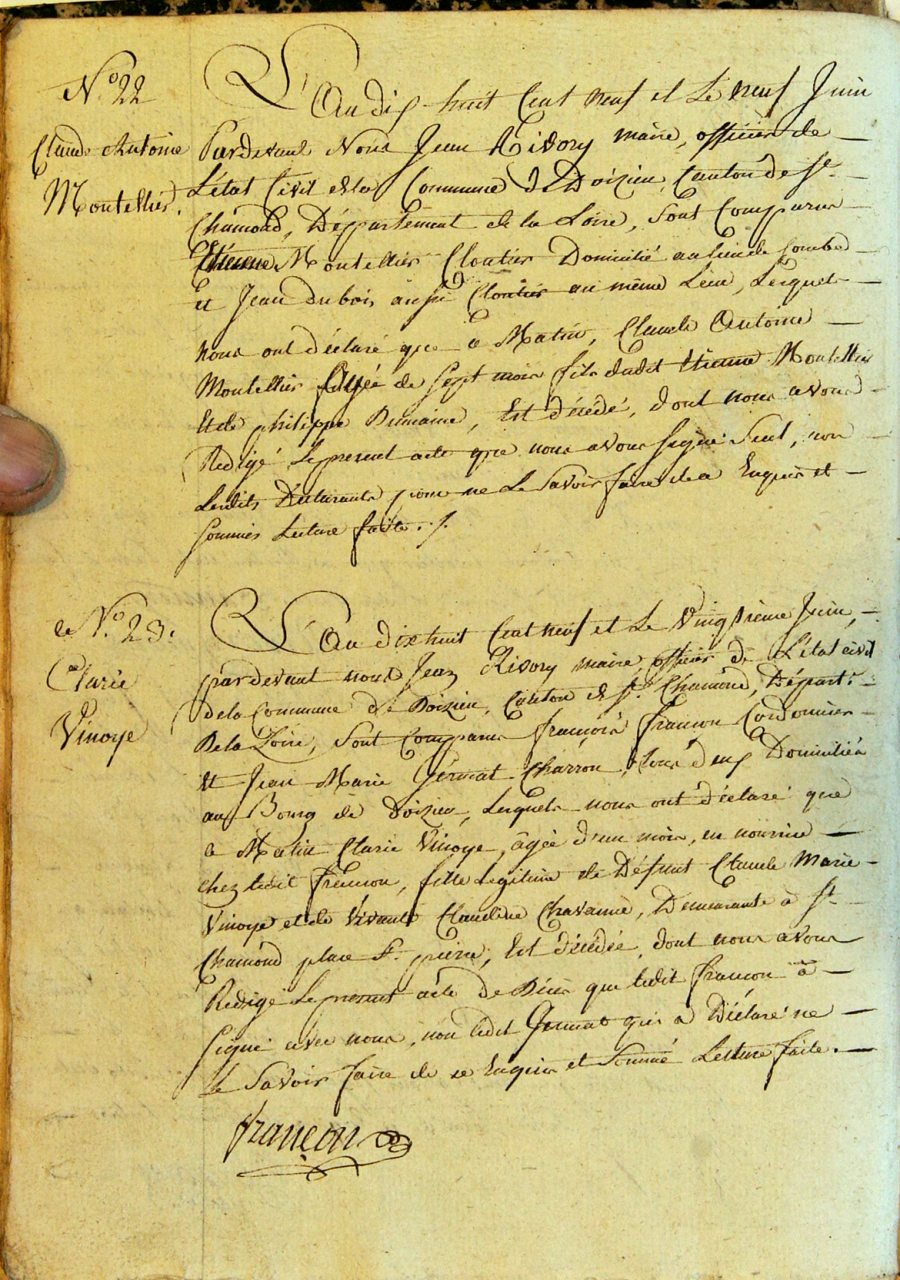 N.o 22
Claude Antoine
Montellier.
L'An dix huit Cent neuf et Le neuf Juin
Pardevant Nous Jean Rivory maire, officier de
L'état Civil de la Commune de Doizieu, Canton de St.
Chamond, Département de la Loire, Sont Comparus
Etienne Montellier Cloutier Domicilié au lieu de Combe
Et Jean Dubois aussi Cloutier au même Lieu, Lesquels
nous ont déclaré que ce Matin, Claude Antoine
Montellier âgée de Sept mois fils dudit Etienne Montellier
Et de philippe Dumaine, Est décédé, dont nous avons
Rédigé Le présent acte que nous avons signé Seul, non
Lesdits Déclarants pour ne Le Savoir faire de ce Enquis et
sommés Lecture faite ./.
N.o 23.
Clarie
Vinoye
L'An dix huit Cent neuf et Le Vingtieme Juin,
pardevant nous Jean Rivory maire, officier de L'état civil
de la Commune de Doizieu, Canton de St. Chamond, Départ.t
De la Loire, Sont Comparus françois françon Cordonnier
et Jean Marie Germat Charron, tous deux Domiciliés
au Bourg de Doizieu, Lesquels nous ont déclaré que
ce Matin Clarie Vinoye, âgée d'un mois, en nourrice
chez ledit françon, fille Légitime de Défunt Claude Marie
Vinoye et de Vivante Claudine Chavanne, Demeurante à St.
Chamond place St. pierre, Est décédée, dont nous avons
Rédigé Le présent acte de Décès que ledit françon à
signé avec nous, non ledit Germat qui a Déclaré ne
Le Savoir faire de ce Enquis et Sommé Lecture faite.
françon